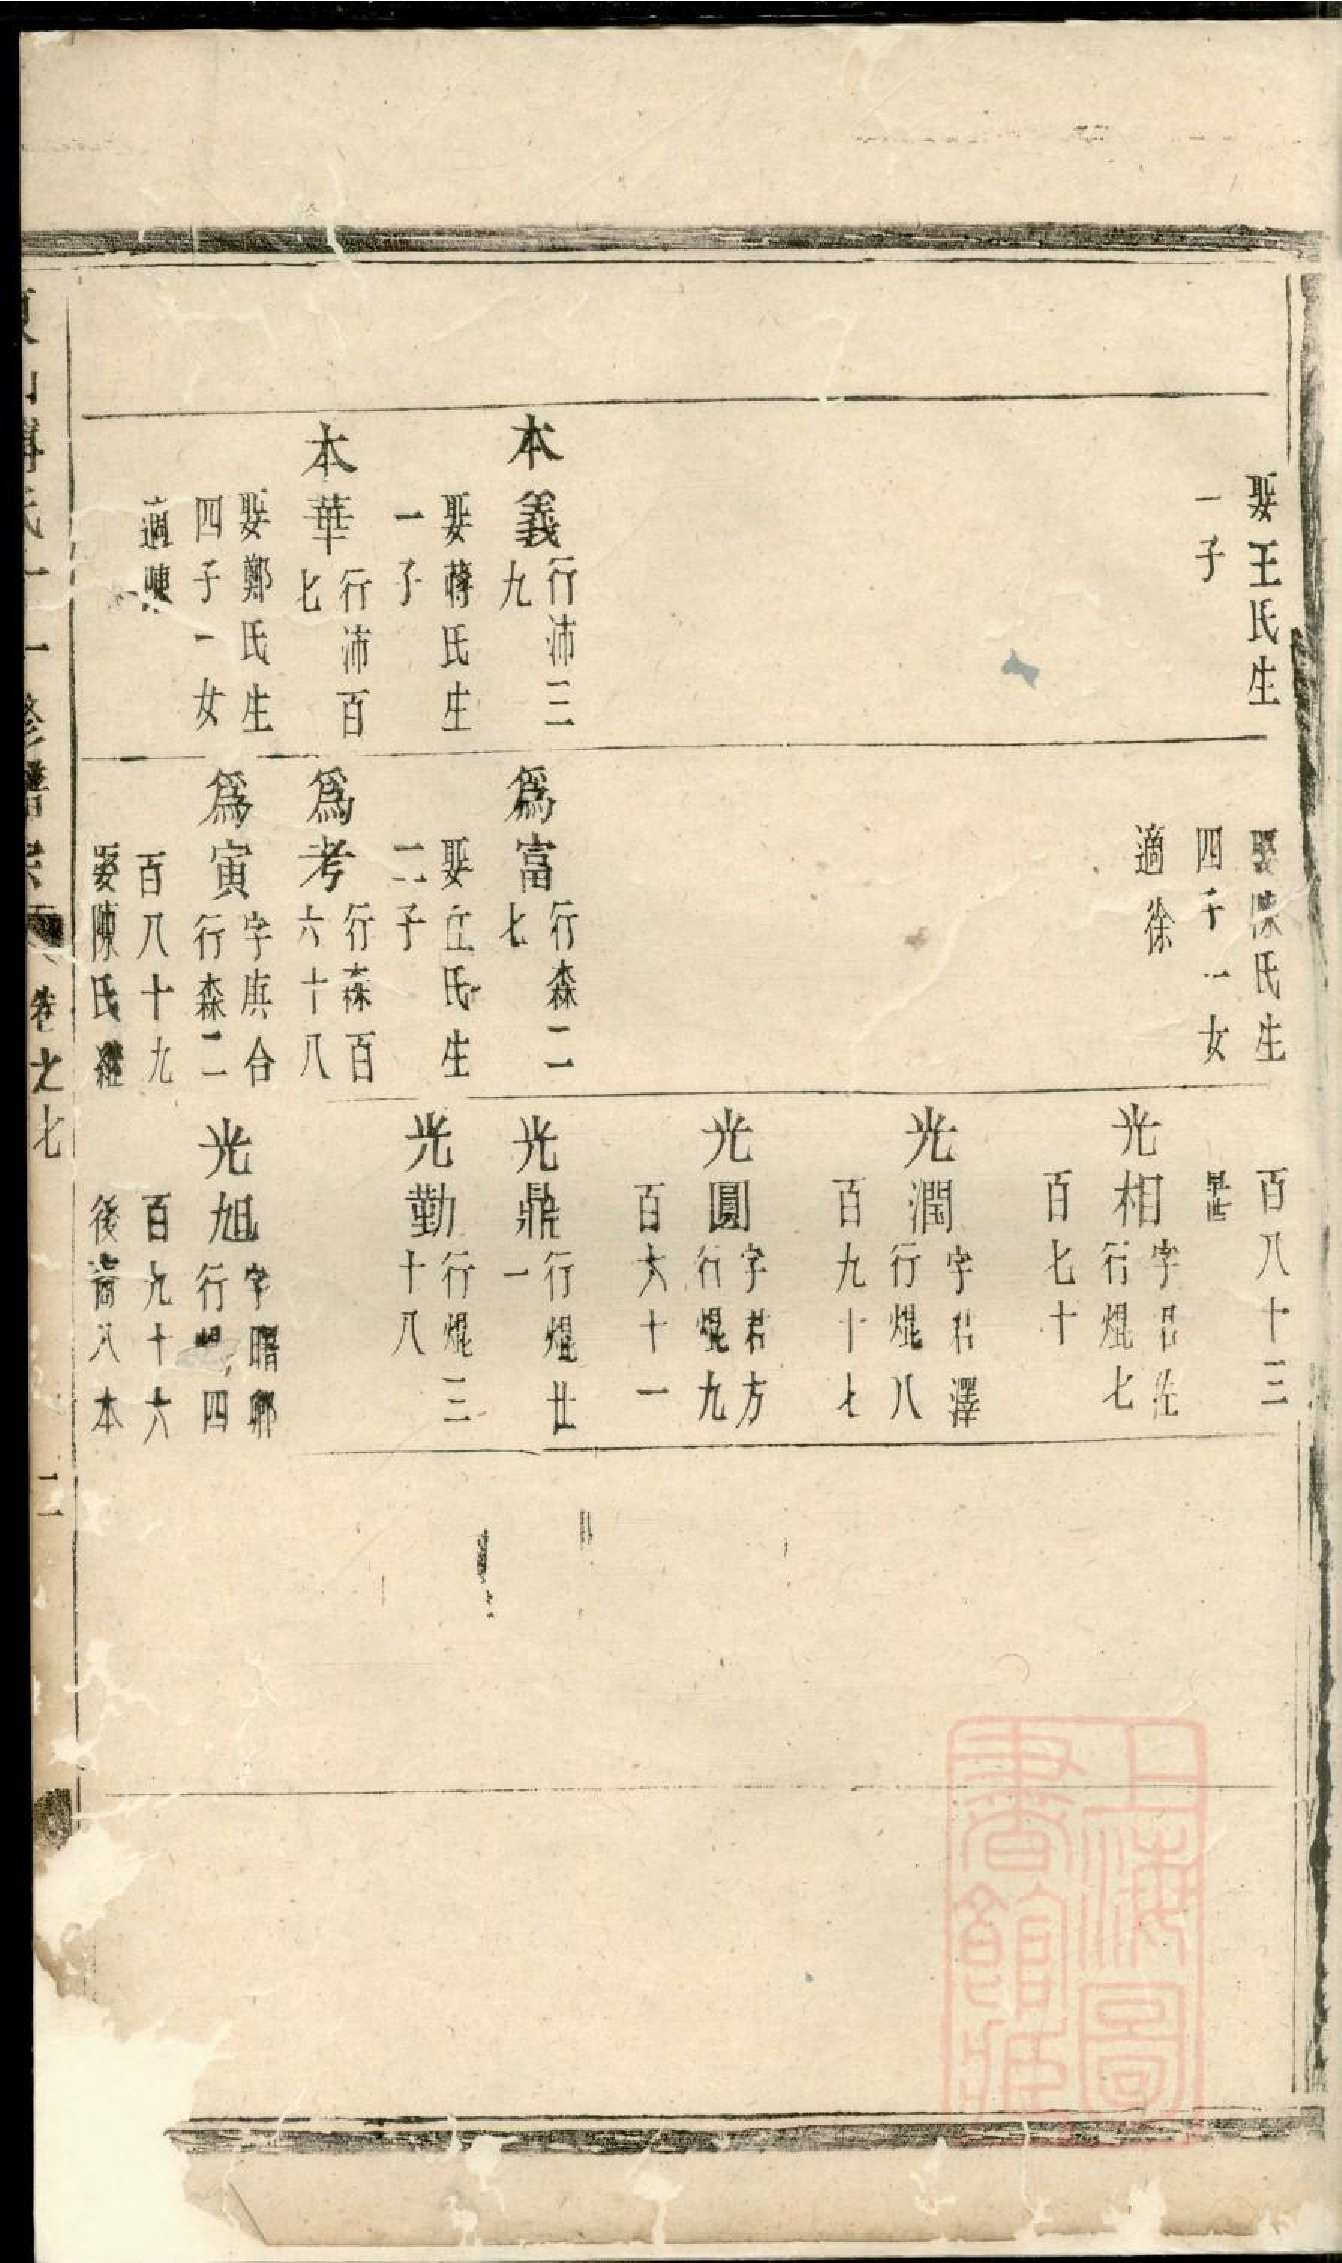 娶王氏生
一子
本義行沛三
九
娶蔣氏生
一子
本華行沛百
七
娶鄭氏生
四子一女
適陳
娶陳氏生
四子一女
適徐
爲富行森二
七
娶丘氏生
二子
爲考行森百
六十八
爲寅字庚合
行森二
百八十九
娶陳氏繼
百八十三
早世
光相字君佐
行焜七
百七十
光潤字君澤
行焜八
百九十七
光圓字君方
行焜九
百六十一
光鼎行焜廿
一
光勤行焜三
十八
光旭字 卿
行焜四
百九十六
後 八本
氏十一修譜 卷之七
二
上海圖
書館藏